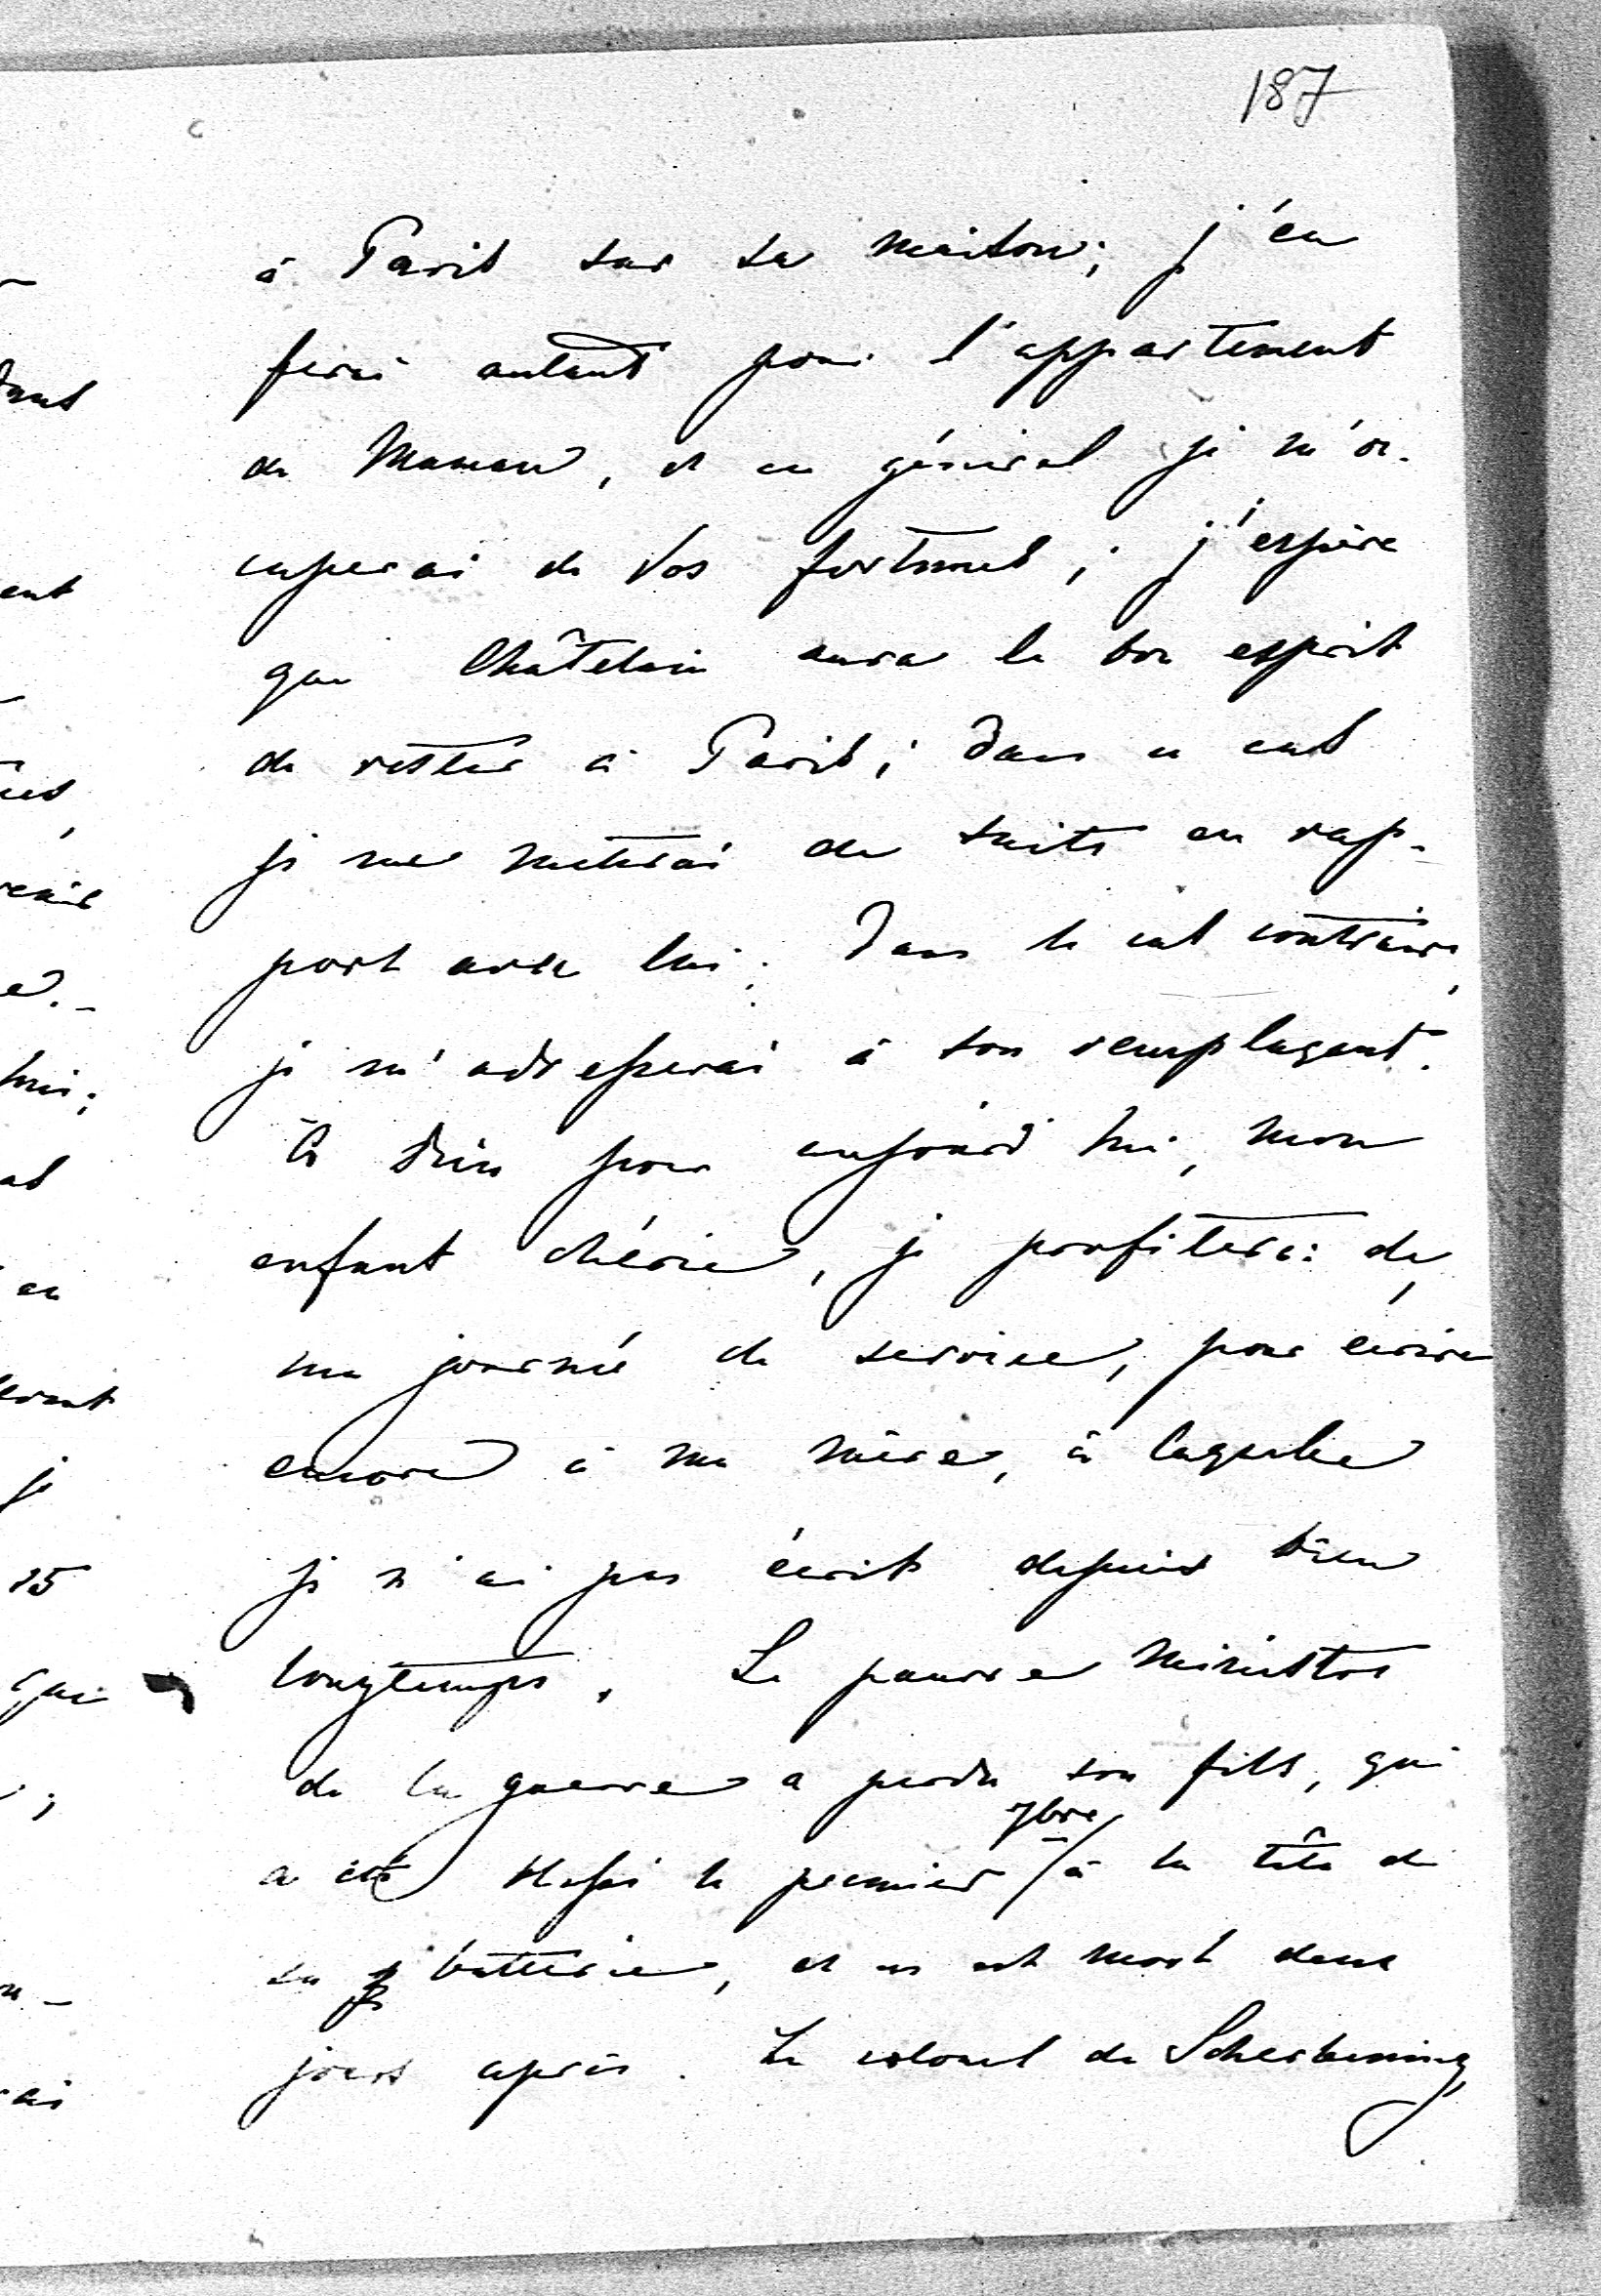 187
à Paris sur sa maison; j'en
ferai autant pour l'appartement
de Maman, et en général je m'oc-
cuperai de vos fortunes; j'espère
que Châtelain aura le bon esprit
de rester à Paris; dans ce cas
je me mettrai de suite en rap-
port avec lui. Dans le cas contraire,
je m'adresserai à son remplaçant.
À Dieu pour aujourd'hui, mon
enfant chérie, je profiterai de
ma journée de service, pour écrire
encore à ma mère, à laquelle
je n'ai pas écrit depuis bien
longtemps. Le pauvre Ministre
de la guerre a perdu son fils, qui
a été blessé le premier 7bre à la tête de
sa batterie, et en est mort deux
jours après. Le colonel de Scherbening,